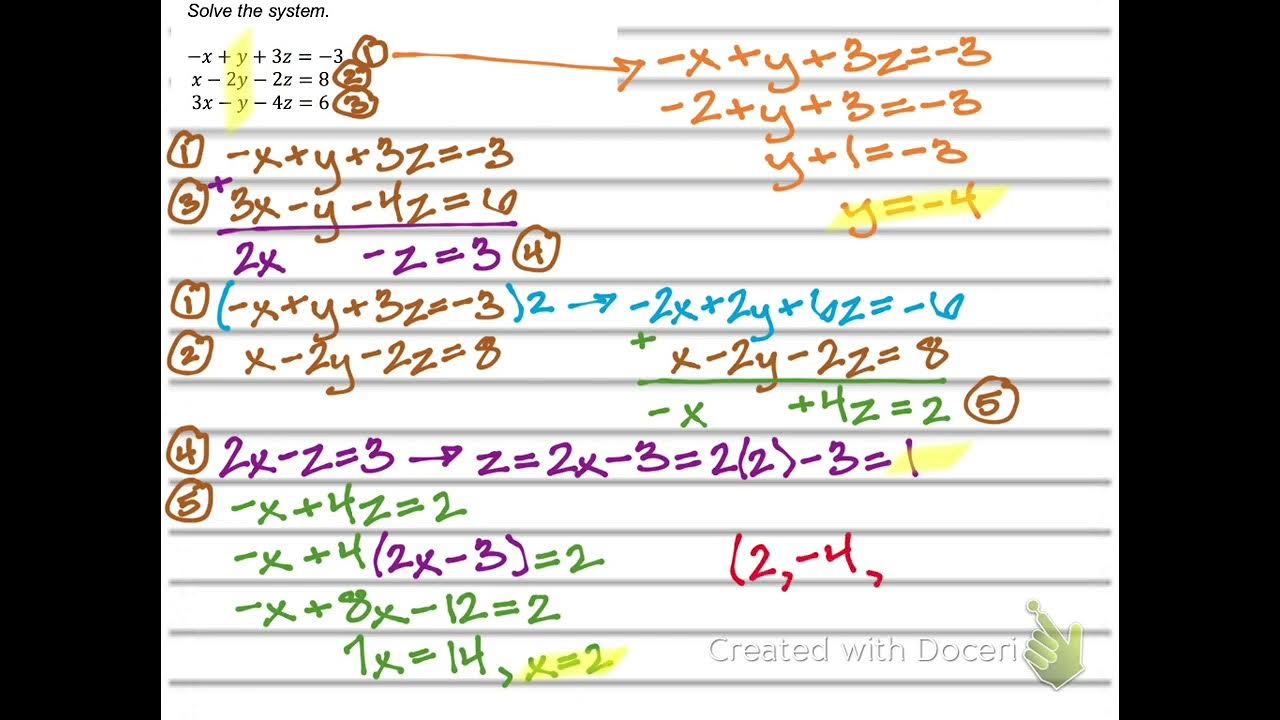 Solve the system.
−x + y + 3z = −3 ①
x − 2y − 2z = 8 ②
3x − y − 4z = 6 ③
-x+y+3z=-3
-2+y+3=-3
y+1=-3
y=-4
① -x+y+3z=-3
③ + 3x-y-4z=6
2x -z=3 ④
① (-x+y+3z=-3)2 → -2x+2y+6z=-6
② x-2y-2z=8
+ x-2y-2z=8
-x +4z=2 ⑤
④ 2x-z=3 → z=2x-3=2(2)-3=1
⑤ -x+4z=2
-x+4(2x-3)=2
-x+8x-12=2
7x=14, x=2
(2,-4,
Created with Doceri